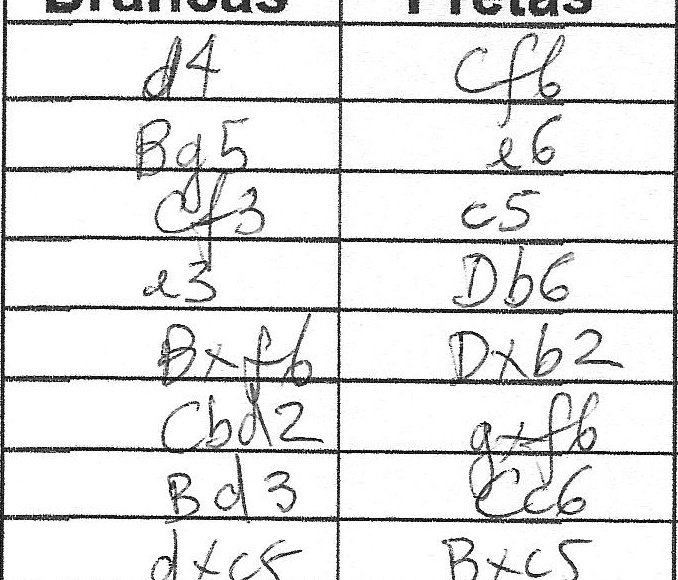 Brancas Pretas
d4 Cf6
Bg5 e6
Cf3 c5
e3 Db6
Bxf6 Dxb2
Cbd2 gxf6
Bd3 Cc6
dxc5 Bxc5